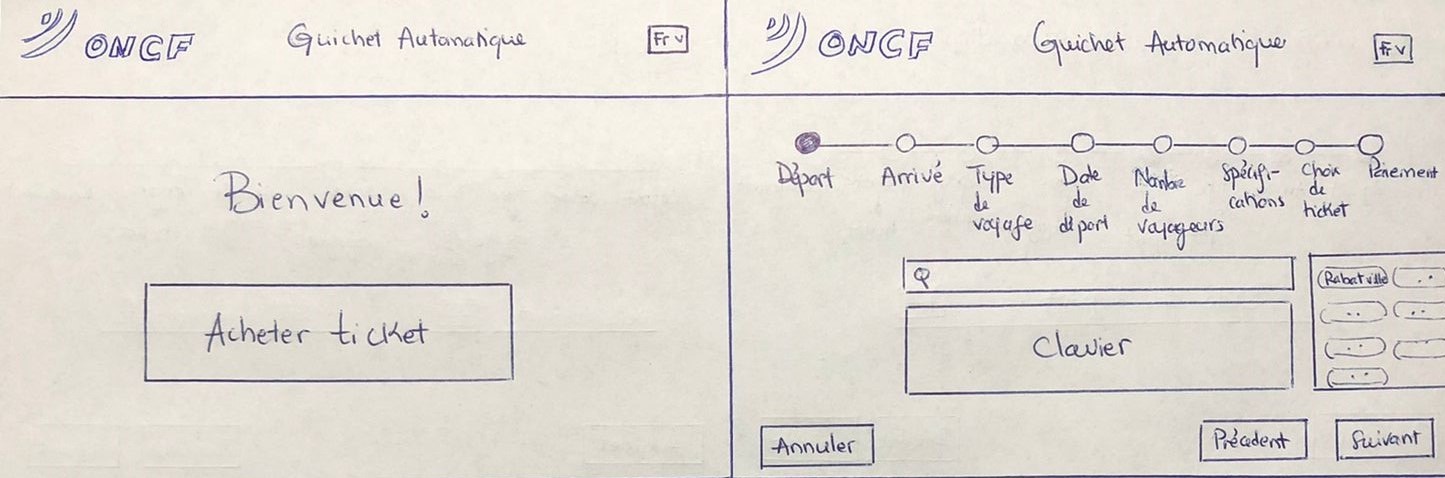 ONCF
Guichet Automatique
Fr v
Bienvenue !
Acheter ticket
ONCF
Guichet Automatique
Fr v
Départ
Arrivé
Type
de
voyage
Date
de
départ
Nombre
de
voyageurs
Spécifi-
cations
Choix
de
ticket
Paiement
Rabat ville
Clavier
Annuler
Précedent
Suivant